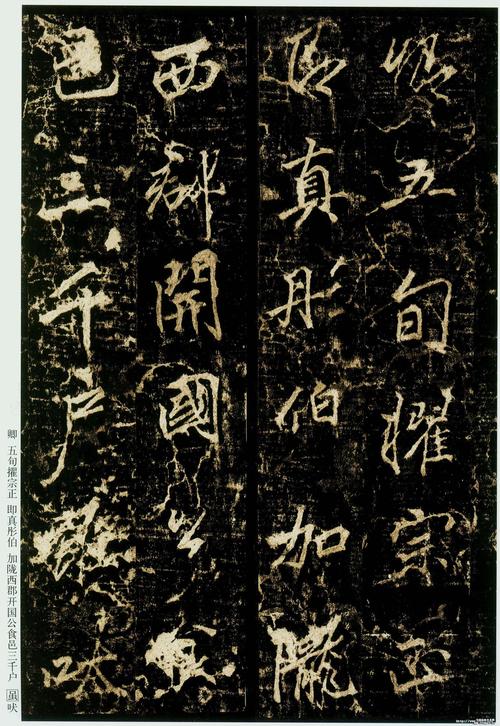 卿五旬擢宗正
即真彤伯加隴
西郡開國公食
邑三千戶吠
卿 五旬擢宗正 即真彤伯 加陇西郡开国公食邑三千户 吠